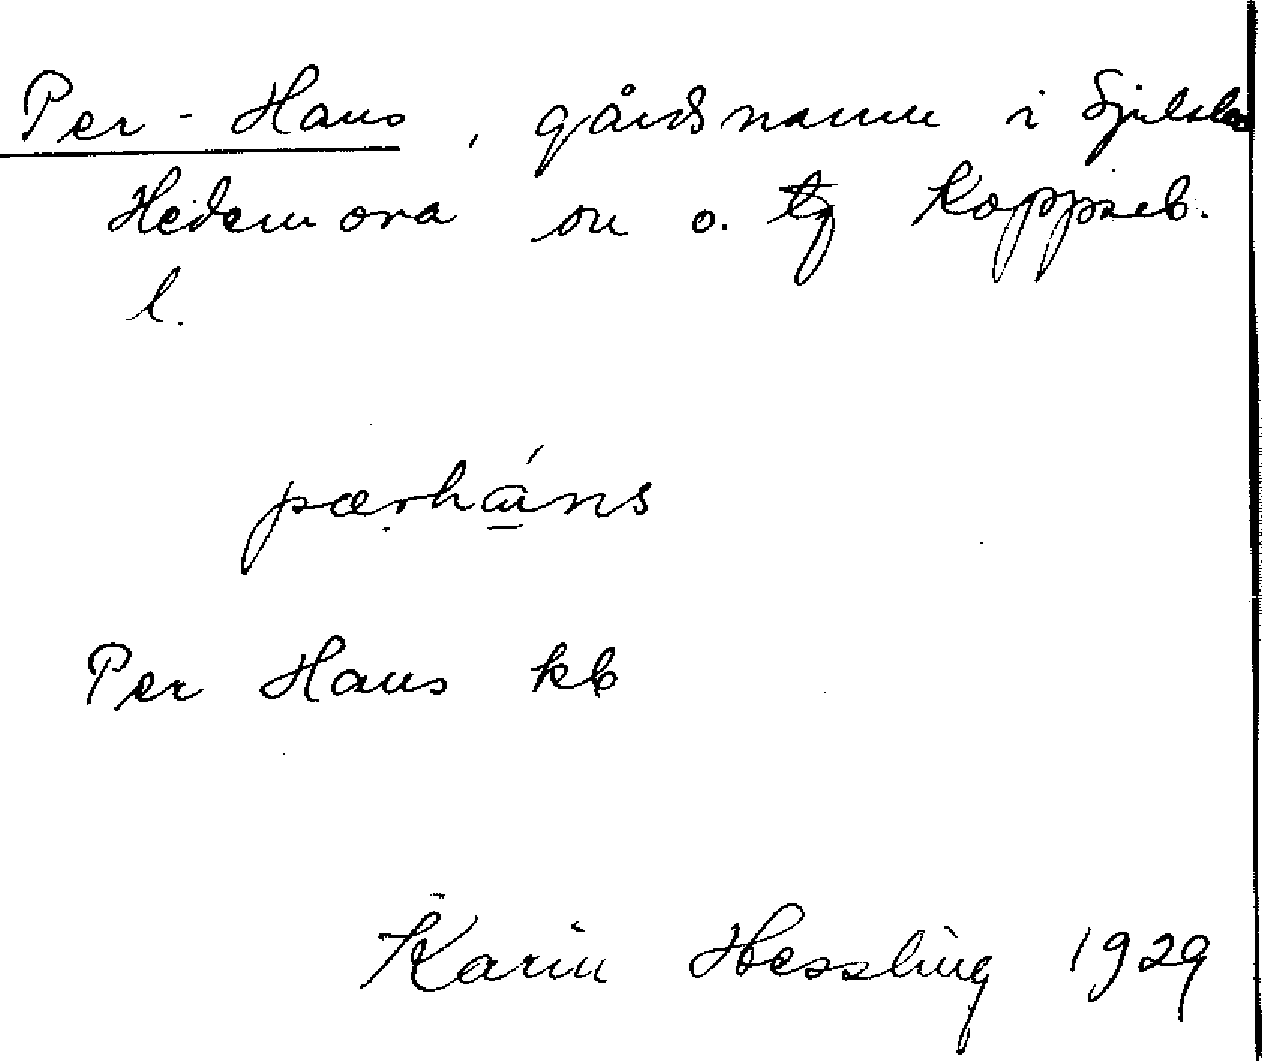 Per-Hans, gårdsnamn i
Hedemora sn o. tg Kopparb.
l.
pærháns
Per Hans kb
Karin Hessling 1929